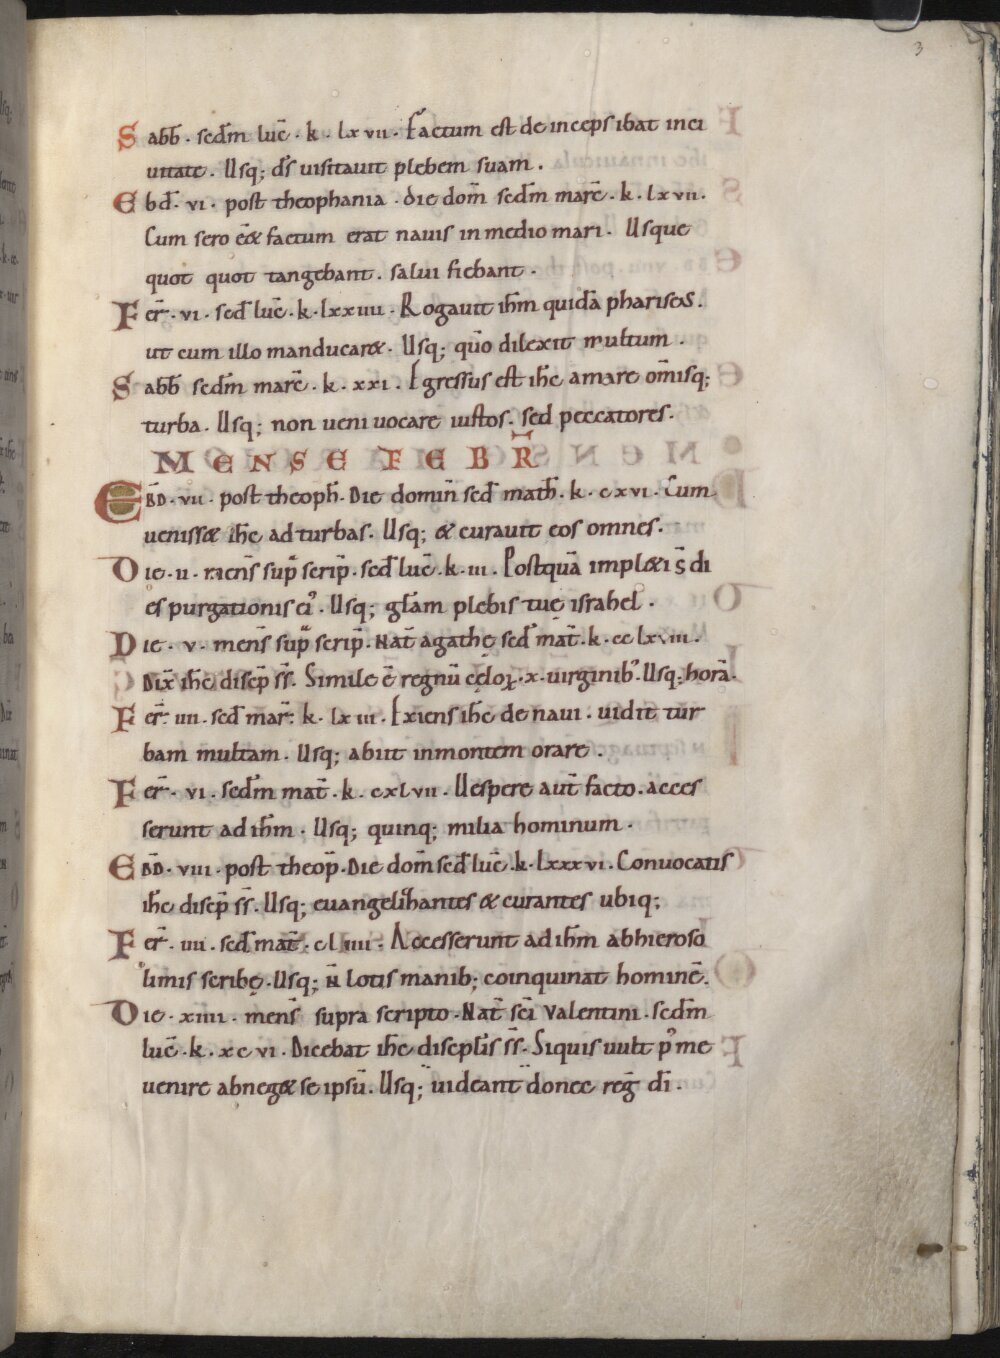 3
Sabb̄ · sed̄m luc̄ · k · lxvii · Factum est deinceps ibat inci
uitate . Usq; d̄s uisitauit plebem suam .
Ebd̄ · vi · post theophania · die dom̄ sed̄m marc̄ · k · lxvii .
Cum sero eē& factum erat nauis in medio mari . Usque
quot quot tangebant . salui fiebant .
Fer̄ · vi · sed̄ luc̄ · k · lxxiiii · Rogauit ih̄m quidā phariseus .
ut cum illo manducar& . Usq; qūo dilexit multum .
Sabb̄ sed̄m marc̄ · k · xxi . Egressus est ih̄c a mare om̄isq;
turba . Usq; non ueni uocare iustos . sed peccatores .
MENSE FEBR̄
Ebd̄ · vii · post theoph̄ · Die domin̄ sed̄ math̄ · k · cxvi · Cum
ueniss& ih̄c ad turbas . Usq; & curauit eos omnes .
Die · ii · mens̄ sup̄ scrip̄ · sed̄ luc̄ · k · iii . Postquā impl&i s̄ di
es purgationis ei᾽ . Usq; gl̄am plebis tuę israhel .
Die · v · mens̄ sup̄ scrip̄ · Nat̄ agathę sed̄ mat̄ · k · cclxviii .
Dix̄ ih̄c discip̄ s̄s . Simile ē regnū cęloꝝ · x · uirginib᾽ . Usq; horā .
Fer̄ · iiii · sed̄ mar̄ · k · lxiii . Exiens ih̄c de naui . uidit tur
bam multam . Usq; abiit in montem orare .
Fer̄ · vi · sed̄m mat̄ · k · cxlvii · Uespere aut̄ facto . acces
serunt ad ih̄m . Usq; quinq; milia hominum .
Ebd̄ · viii · post theop̄ · Die dom̄ sed̄ luc̄ · k · lxxxvi . Conuocatis
ih̄c discip̄ s̄s . Usq; euangelizantes & curantes ubiq;
Fer̄ · iiii · sed̄ mat̄ · cliiii · Accesserunt ad ih̄m ab hieroso
limis scribę . Usq; n̄ lotis manib; coinquinat hominē .
Die · xiiii · mens̄ supra scripto · Nat̄ sc̄i Valentini · sed̄m
luc̄ · k · xcvi . Dicebat ih̄c discipl̄is s̄s . Siquis uult p᾽ me
uenire abneg& se ipsū . Usq; uideant donec reḡ d̄i .